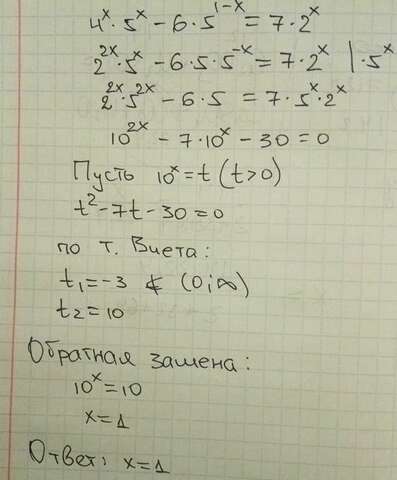 4ˣ · 5ˣ − 6 · 5¹⁻ˣ = 7 · 2ˣ
2²ˣ · 5ˣ − 6 · 5 · 5⁻ˣ = 7 · 2ˣ | · 5ˣ
2²ˣ · 5²ˣ − 6 · 5 = 7 · 5ˣ · 2ˣ
10²ˣ − 7 · 10ˣ − 30 = 0
Пусть 10ˣ = t (t > 0)
t² − 7t − 30 = 0
по т. Виета:
t₁ = −3 ∉ (0; ∞)
t₂ = 10
Обратная замена:
10ˣ = 10
x = 1
Ответ: x = 1